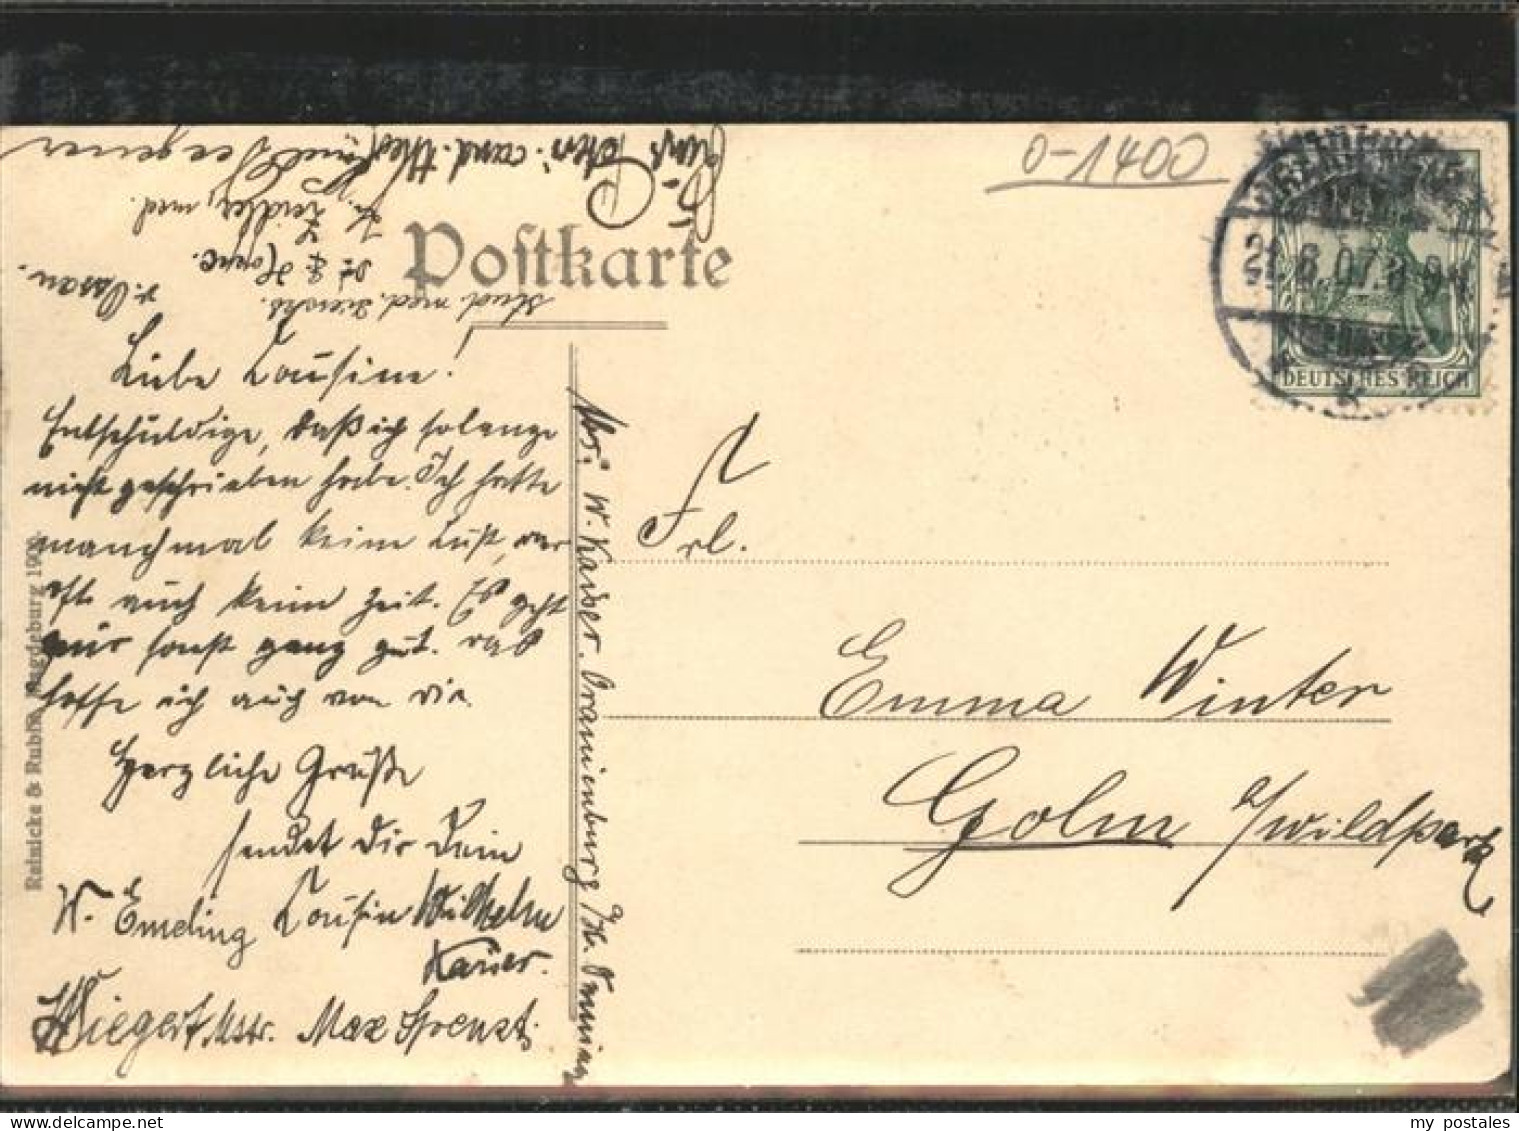 O-1400
Postkarte
DEUTSCHES REICH
Liebe Cousine!
Entschuldige, daß ich solange
nicht geschrieben habe. Ich hatte
manchmal keine Lust, aber
oft auch keine Zeit. Es geht
mir sonst ganz gut. Das
hoffe ich auch von dir.
Herzliche Grüße
sendet dir Dein
W. Emeling Cousin Wilhelm
Kaiser.
Wiegert, Mstr. Max
Abs: W. Kaiser. Oranienburg
Frl.
Emma Winter
Golm a/Wildpark
Reinicke & Rubin, Magdeburg
cand. med.
stud. med.
my postales